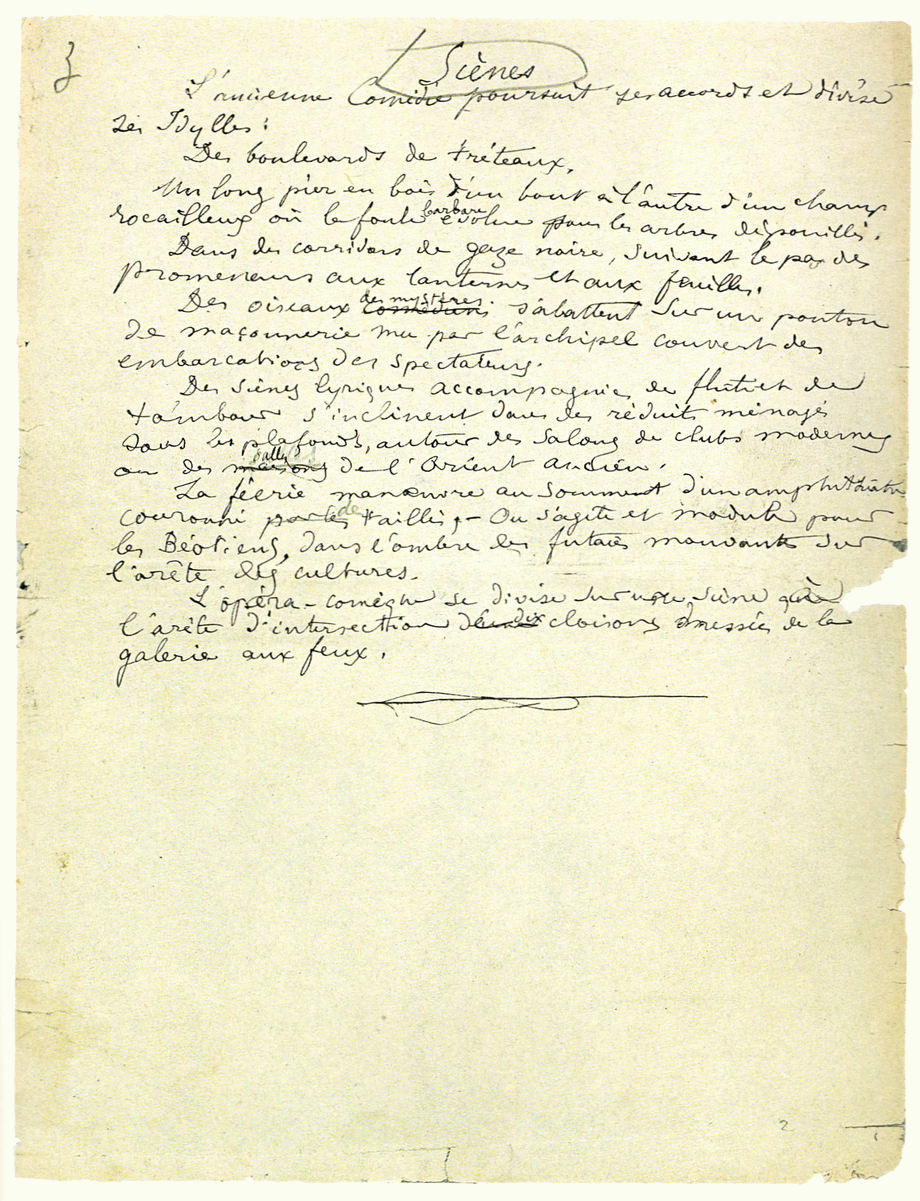 3
Scènes
L'ancienne Comédie poursuit ses accords et divise
ses Idylles :
Des boulevards de tréteaux,
Un long pier en bois d'un bout à l'autre d'un champ
rocailleux où la foule barbare évolue sous les arbres dépouillés.
Dans des corridors de gaze noire, suivant le pas des
promeneurs aux lanternes et aux feuilles.
Des oiseaux comédiens des mystères s'abattent sur un ponton
de maçonnerie mu par l'archipel couvert des
embarcations des spectateurs.
Des scènes lyriques accompagnées de flûte et de
tambour s'inclinent dans des réduits ménagés
sous les plafonds, autour des salons de clubs modernes
ou des maisons salles de l'Orient ancien.
La féerie manœuvre au sommet d'un amphithéâtre
couronné par les de taillis, – Ou s'agite et module pour
les Béotiens, dans l'ombre des futaies mouvantes sur
l'arête des cultures.
L'opéra-comique se divise sur une scène à
l'arête d'intersection de dix cloisons dressées de la
galerie aux feux.
2